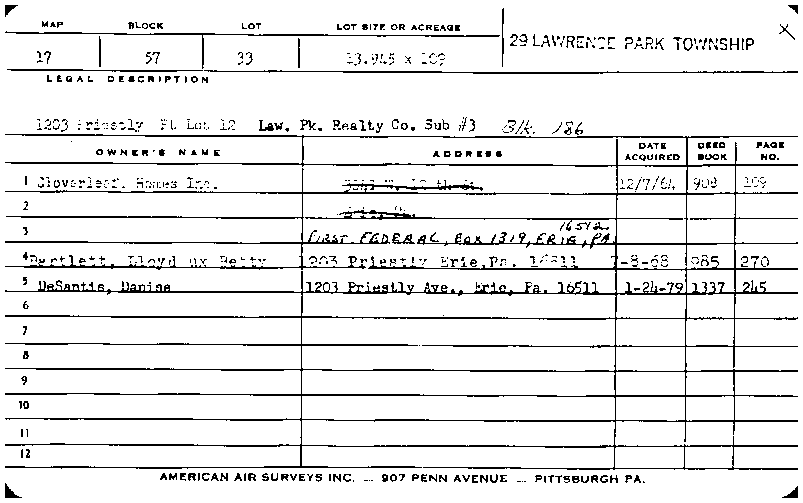 MAP BLOCK LOT LOT SIZE OR ACREAGE
29 LAWRENCE PARK TOWNSHIP X
17 57 33 13.945 x 109
LEGAL DESCRIPTION
1203 Priestly Pt Lot 12 Law. Pk. Realty Co. Sub #3 Blk. 186
OWNER'S NAME ADDRESS DATE ACQUIRED DEED BOOK PAGE NO.
1 Cloverleaf Homes Inc. 12/7/64 908 109
2 Erie, Pa.
3 FIRST FEDERAL, BOX 1319, ERIE, PA 16512
4 Bartlett, Lloyd ux Betty 1203 Priestly Erie, Pa. 16511 7-8-68 985 270
5 DeSantis, Danise 1203 Priestly Ave., Erie, Pa. 16511 1-24-79 1337 245
6
7
8
9
10
11
12
AMERICAN AIR SURVEYS INC. — 907 PENN AVENUE — PITTSBURGH PA.